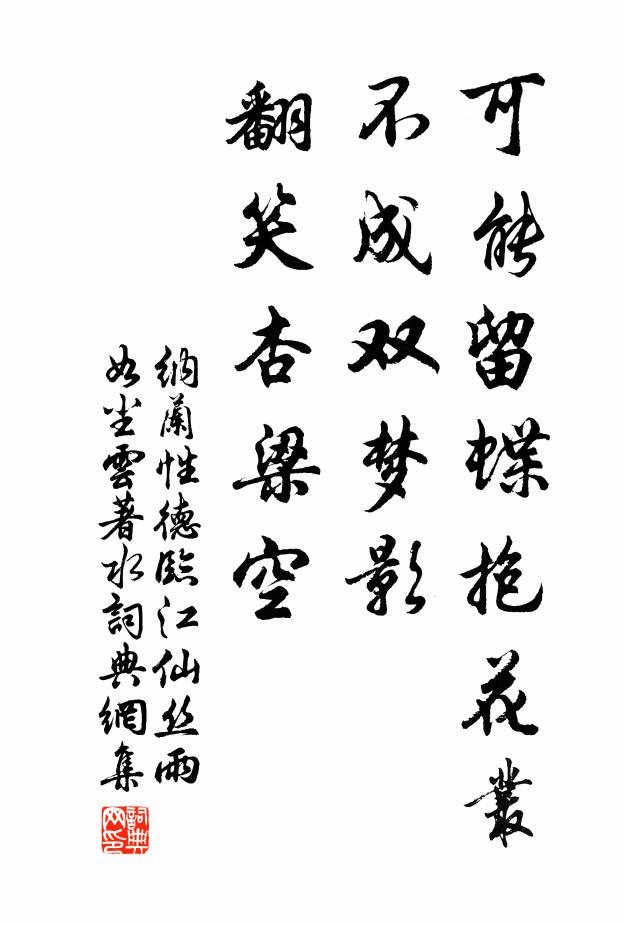 可能留蝶抱花叢
不成双梦影
翻笑杏梁空
納蘭性德臨江仙丝雨
如尘雲著水詞典網集
詞典
网印